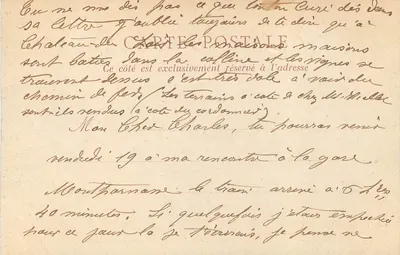 Tu ne me dis pas ce que ton Curé dis dans
sa lettre j'oublie toujours de te dire qu'a
Chateau du les maisons maisons
CARTE POSTALE
sont baties dans la colline et les vignes se
Ce côté est exclusivement réservé à l'adresse
trouvent dessus c'est très drole a voir du
chemin de fer, Les terrains a coté de chez Mr
sont ils vendus (a coté du cordonnier).
Mon Cher Charles, tu pourras venir
vendredi 19 a ma rencontre à la gare
Montparnasse le train arrive a 6 h
40 minutes. Si quelquefois j'etais
pour ce jour la je t'écrirais, je pense ne